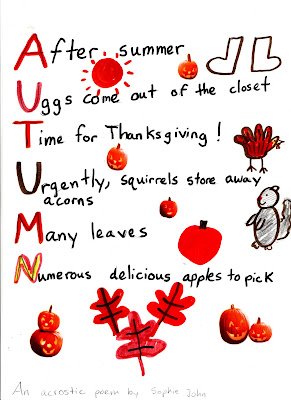 After summer
Uggs come out of the closet
Time for Thanksgiving!
Urgently, squirrels store away
acorns
Many leaves
Numerous delicious apples to pick
An acrostic poem by Sophie John